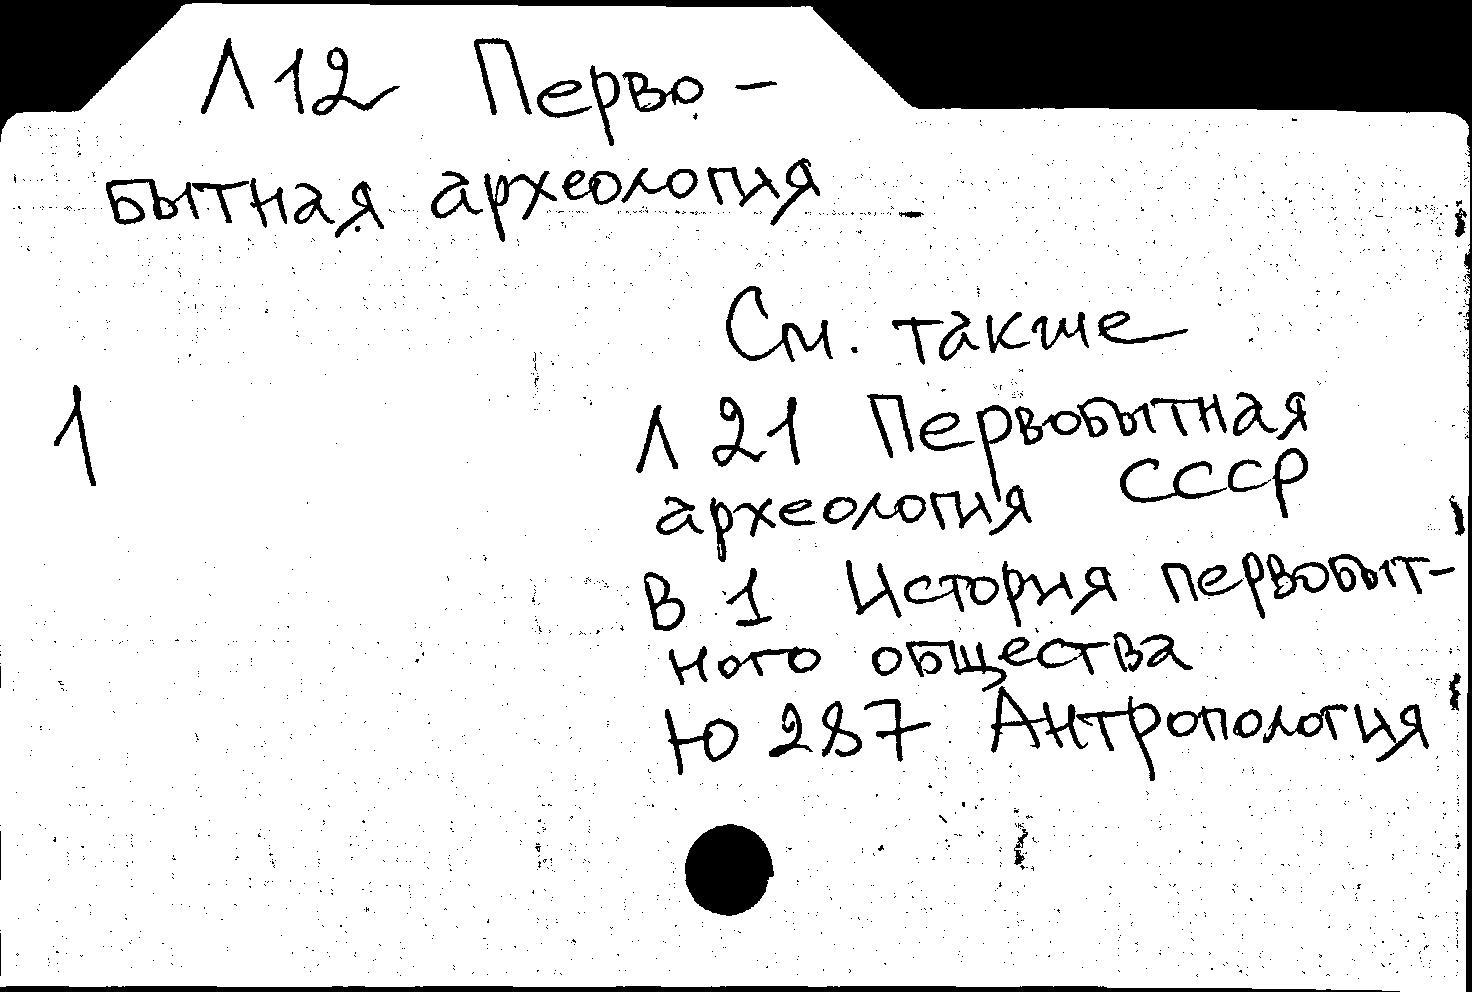 Л 12 Перво-
бытная археология
См. также
1
Л 21 Первобытная
археология СССР
В 1 История первобыт-
ного общества
Ю 287 Антропология